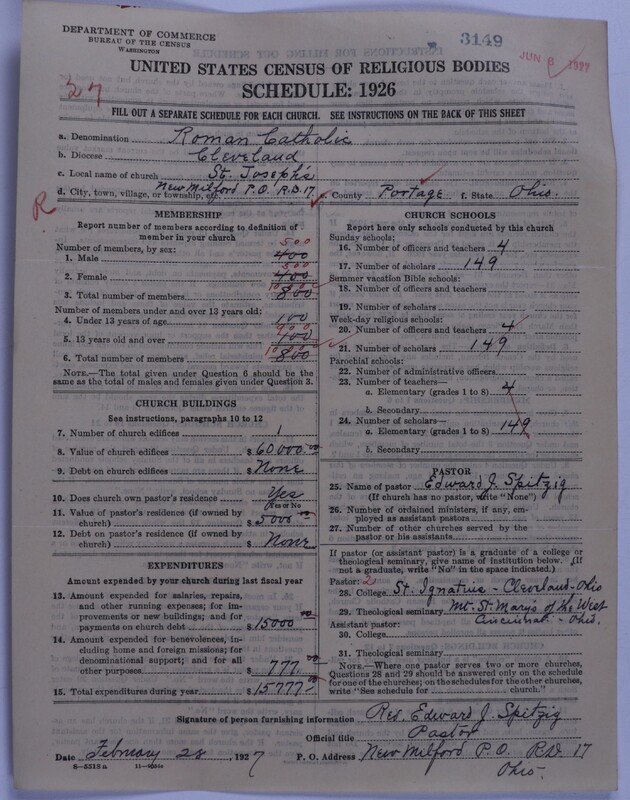 DEPARTMENT OF COMMERCE
BUREAU OF THE CENSUS
WASHINGTON
3149
JUN 8 1927
UNITED STATES CENSUS OF RELIGIOUS BODIES
SCHEDULE: 1926
27
FILL OUT A SEPARATE SCHEDULE FOR EACH CHURCH. SEE INSTRUCTIONS ON THE BACK OF THIS SHEET
a. Denomination Roman Catholic
b. Diocese Cleveland
c. Local name of church St. Joseph's
d. City, town, village, or township, etc. New Milford P.O. R.D. 17 e. County Portage f. State Ohio.
R
MEMBERSHIP
Report number of members according to definition of member in your church
Number of members, by sex:
1. Male 400 500
2. Female 400 500
3. Total number of members 800 1000
Number of members under and over 13 years old:
4. Under 13 years of age 100
5. 13 years old and over 700 900
6. Total number of members 800 1000
NOTE.—The total given under Question 6 should be same as the total of males and females given under Question 3.
CHURCH BUILDINGS
See instructions, paragraphs 10 to 12
7. Number of church edifices 1
8. Value of church edifices $ 60000.00
9. Debt on church edifices $ None
10. Does church own pastor's residence Yes
Yes or No
11. Value of pastor's residence (if owned by church) $ 5000 00
12. Debt on pastor's residence (if owned by church) $ None
EXPENDITURES
Amount expended by your church during last fiscal year
13. Amount expended for salaries, repairs, and other running expenses; for improvements or new buildings; and for payments on church debt $ 15000 00
14. Amount expended for benevolences, including home and foreign missions; for denominational support; and for all other purposes $ 777 00
15. Total expenditures during year $ 15777 00
CHURCH SCHOOLS
Report here only schools conducted by this church
Sunday schools:
16. Number of officers and teachers 4
17. Number of scholars 149
Summer vacation Bible schools:
18. Number of officers and teachers
19. Number of scholars
Week-day religious schools:
20. Number of officers and teachers 4
21. Number of scholars 149
Parochial schools:
22. Number of administrative officers
23. Number of teachers—
a. Elementary (grades 1 to 8) 4
b. Secondary
24. Number of scholars—
a. Elementary (grades 1 to 8) 149
b. Secondary
PASTOR
25. Name of pastor Edward J. Spitzig
(If church has no pastor, write "None")
26. Number of ordained ministers, if any, employed as assistant pastors
27. Number of other churches served by the pastor or his assistants
If pastor (or assistant pastor) is a graduate of a college or theological seminary, give name of institution below. (If not a graduate, write "No" in the space indicated.)
Pastor: 2
28. College St. Ignatius - Cleveland - Ohio
29. Theological seminary Mt. St. Mary's of the West
Cincinnati - Ohio.
Assistant pastor:
30. College
31. Theological seminary
NOTE.—Where one pastor serves two or more churches, Questions 28 and 29 should be answered only on the schedule for one of the churches; on the schedules for the other churches, write "See schedule for church."
Signature of person furnishing information Rev. Edward J. Spitzig
Official title Pastor
Date February 28, 1927 P. O. Address New Milford P.O. R.D. 17
Ohio.